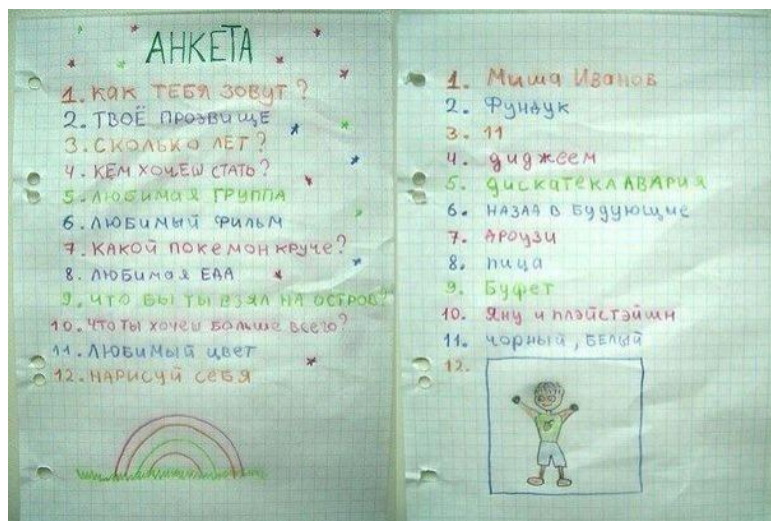 АНКЕТА
1. КАК ТЕБЯ ЗОВУТ?
2. ТВОЁ ПРОЗВИЩЕ
3. СКОЛЬКО ЛЕТ?
4. КЕМ ХОЧЕШ СТАТЬ?
5. ЛЮБИМАЯ ГРУППА
6. ЛЮБИМЫЙ ФИЛЬМ
7. КАКОЙ ПОКЕМОН КРУЧЕ?
8. ЛЮБИМАЯ ЕДА
9. ЧТО БЫ ТЫ ВЗЯЛ НА ОСТРОВ?
10. ЧТО ТЫ ХОЧЕШ БОЛЬШЕ ВСЕГО?
11. ЛЮБИМЫЙ ЦВЕТ
12. НАРИСУЙ СЕБЯ
1. Миша Иванов
2. Фундук
3. 11
4. диджеем
5. дискатека АВАРИЯ
6. НАЗАД в будующие
7. Ароузи
8. пица
9. Буфет
10. Яну и плэйстэйшн
11. чорный, БЕЛЫЙ
12.